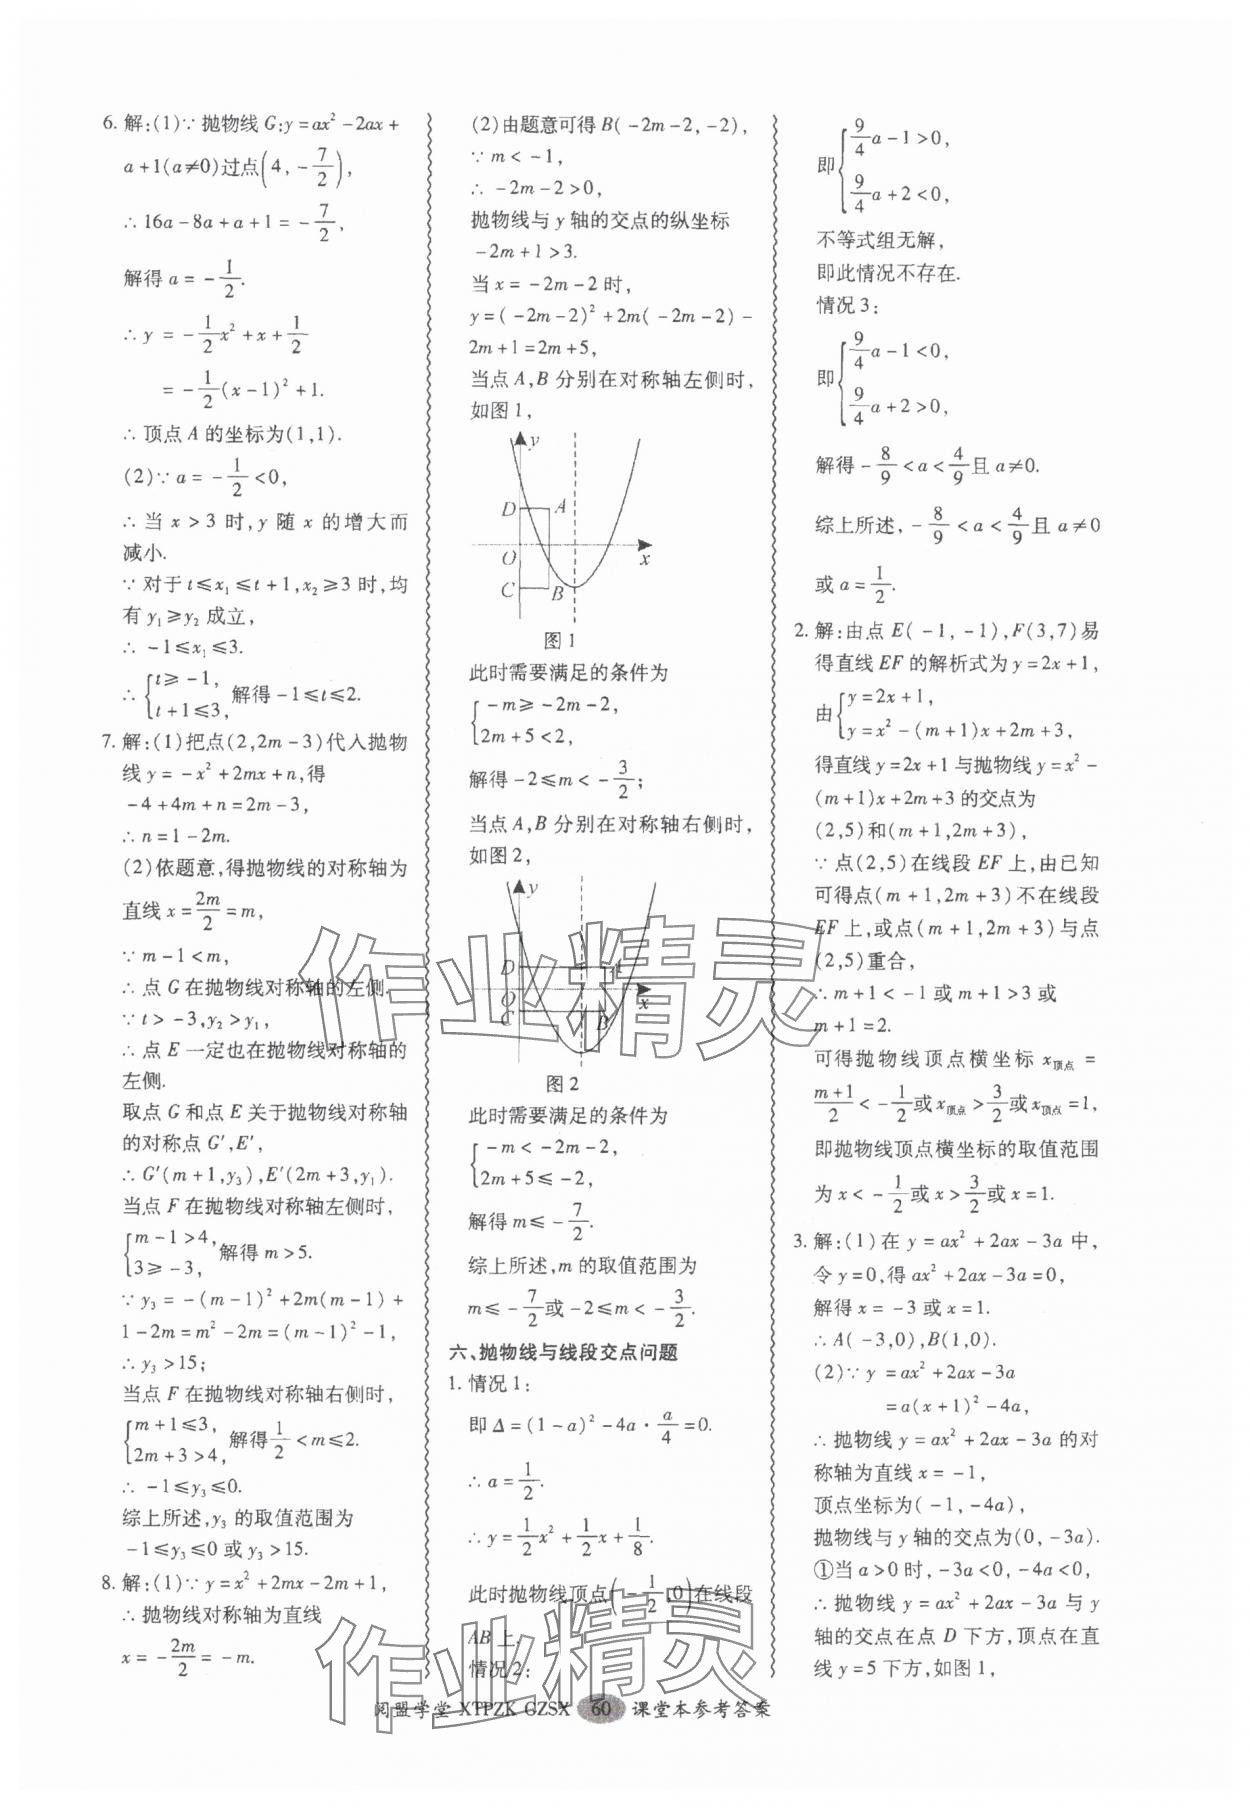 6. 解:(1)∵ 抛物线 G:y=ax²-2ax+
a+1(a≠0)过点(4,-7/2),
∴ 16a-8a+a+1=-7/2,
解得 a=-1/2.
∴ y =-1/2x²+x+1/2
=-1/2(x-1)²+1.
∴ 顶点 A 的坐标为(1,1).
(2)∵ a=-1/2<0,
∴ 当 x>3 时,y 随 x 的增大而
减小.
∵ 对于 t≤x₁≤t+1,x₂≥3 时,均
有 y₁≥y₂ 成立,
∴ -1≤x₁≤3.
∴ {t≥-1,
t+1≤3, 解得-1≤t≤2.
7. 解:(1)把点(2,2m-3)代入抛物
线 y=-x²+2mx+n,得
-4+4m+n=2m-3,
∴ n=1-2m.
(2)依题意,得抛物线的对称轴为
直线 x=2m/2=m,
∵ m-1<m,
∴ 点 G 在抛物线对称轴的左侧.
∵ t>-3,y₂>y₁,
∴ 点 E 一定也在抛物线对称轴的
左侧.
取点 G 和点 E 关于抛物线对称轴
的对称点 G′,E′,
∴ G′(m+1,y₃),E′(2m+3,y₁).
当点 F 在抛物线对称轴左侧时,
{m-1>4,
3≥-3, 解得 m>5.
∵ y₃=-(m-1)²+2m(m-1)+
1-2m=m²-2m=(m-1)²-1,
∴ y₃>15;
当点 F 在抛物线对称轴右侧时,
{m+1≤3,
2m+3>4, 解得1/2<m≤2.
∴ -1≤y₃≤0.
综上所述,y₃ 的取值范围为
-1≤y₃≤0 或 y₃>15.
8. 解:(1)∵ y=x²+2mx-2m+1,
∴ 抛物线对称轴为直线
x=-2m/2=-m.
(2)由题意可得 B(-2m-2,-2),
∵ m<-1,
∴ -2m-2>0,
抛物线与 y 轴的交点的纵坐标
-2m+1>3.
当 x=-2m-2 时,
y=(-2m-2)²+2m(-2m-2)-
2m+1=2m+5,
当点 A,B 分别在对称轴左侧时,
如图 1,
y
D A
O x
C B
图 1
此时需要满足的条件为
{-m≥-2m-2,
2m+5<2,
解得-2≤m<-3/2;
当点 A,B 分别在对称轴右侧时,
如图 2,
y
D A
O x
C B
图 2
此时需要满足的条件为
{-m<-2m-2,
2m+5≤-2,
解得 m≤-7/2.
综上所述,m 的取值范围为
m≤-7/2或-2≤m<-3/2.
六、抛物线与线段交点问题
1. 情况 1:
即 Δ=(1-a)²-4a·a/4=0.
∴ a=1/2.
∴ y=1/2x²+1/2x+1/8.
此时抛物线顶点(-1/2,0)在线段
AB 上.
情况 2:
即{9/4a-1>0,
9/4a+2<0,
不等式组无解,
即此情况不存在.
情况 3:
即{9/4a-1<0,
9/4a+2>0,
解得-8/9<a<4/9且 a≠0.
综上所述,-8/9<a<4/9且 a≠0
或 a=1/2.
2. 解:由点 E(-1,-1),F(3,7)易
得直线 EF 的解析式为 y=2x+1,
由{y=2x+1,
y=x²-(m+1)x+2m+3,
得直线 y=2x+1 与抛物线 y=x²-
(m+1)x+2m+3 的交点为
(2,5)和(m+1,2m+3),
∵ 点(2,5)在线段 EF 上,由已知
可得点(m+1,2m+3)不在线段
EF 上,或点(m+1,2m+3)与点
(2,5)重合,
∴ m+1<-1 或 m+1>3 或
m+1=2.
可得抛物线顶点横坐标 x顶点=
m+1/2<-1/2或 x顶点>3/2或 x顶点=1,
即抛物线顶点横坐标的取值范围
为 x<-1/2或 x>3/2或 x=1.
3. 解:(1)在 y=ax²+2ax-3a 中,
令 y=0,得 ax²+2ax-3a=0,
解得 x=-3 或 x=1.
∴ A(-3,0),B(1,0).
(2)∵ y=ax²+2ax-3a
=a(x+1)²-4a,
∴ 抛物线 y=ax²+2ax-3a 的对
称轴为直线 x=-1,
顶点坐标为(-1,-4a),
抛物线与 y 轴的交点为(0,-3a).
①当 a>0 时,-3a<0,-4a<0,
∴ 抛物线 y=ax²+2ax-3a 与 y
轴的交点在点 D 下方,顶点在直
线 y=5 下方,如图 1,
作业精灵
作业精灵
阅盟学堂 XTPZK GZSX 60 课堂本参考答案